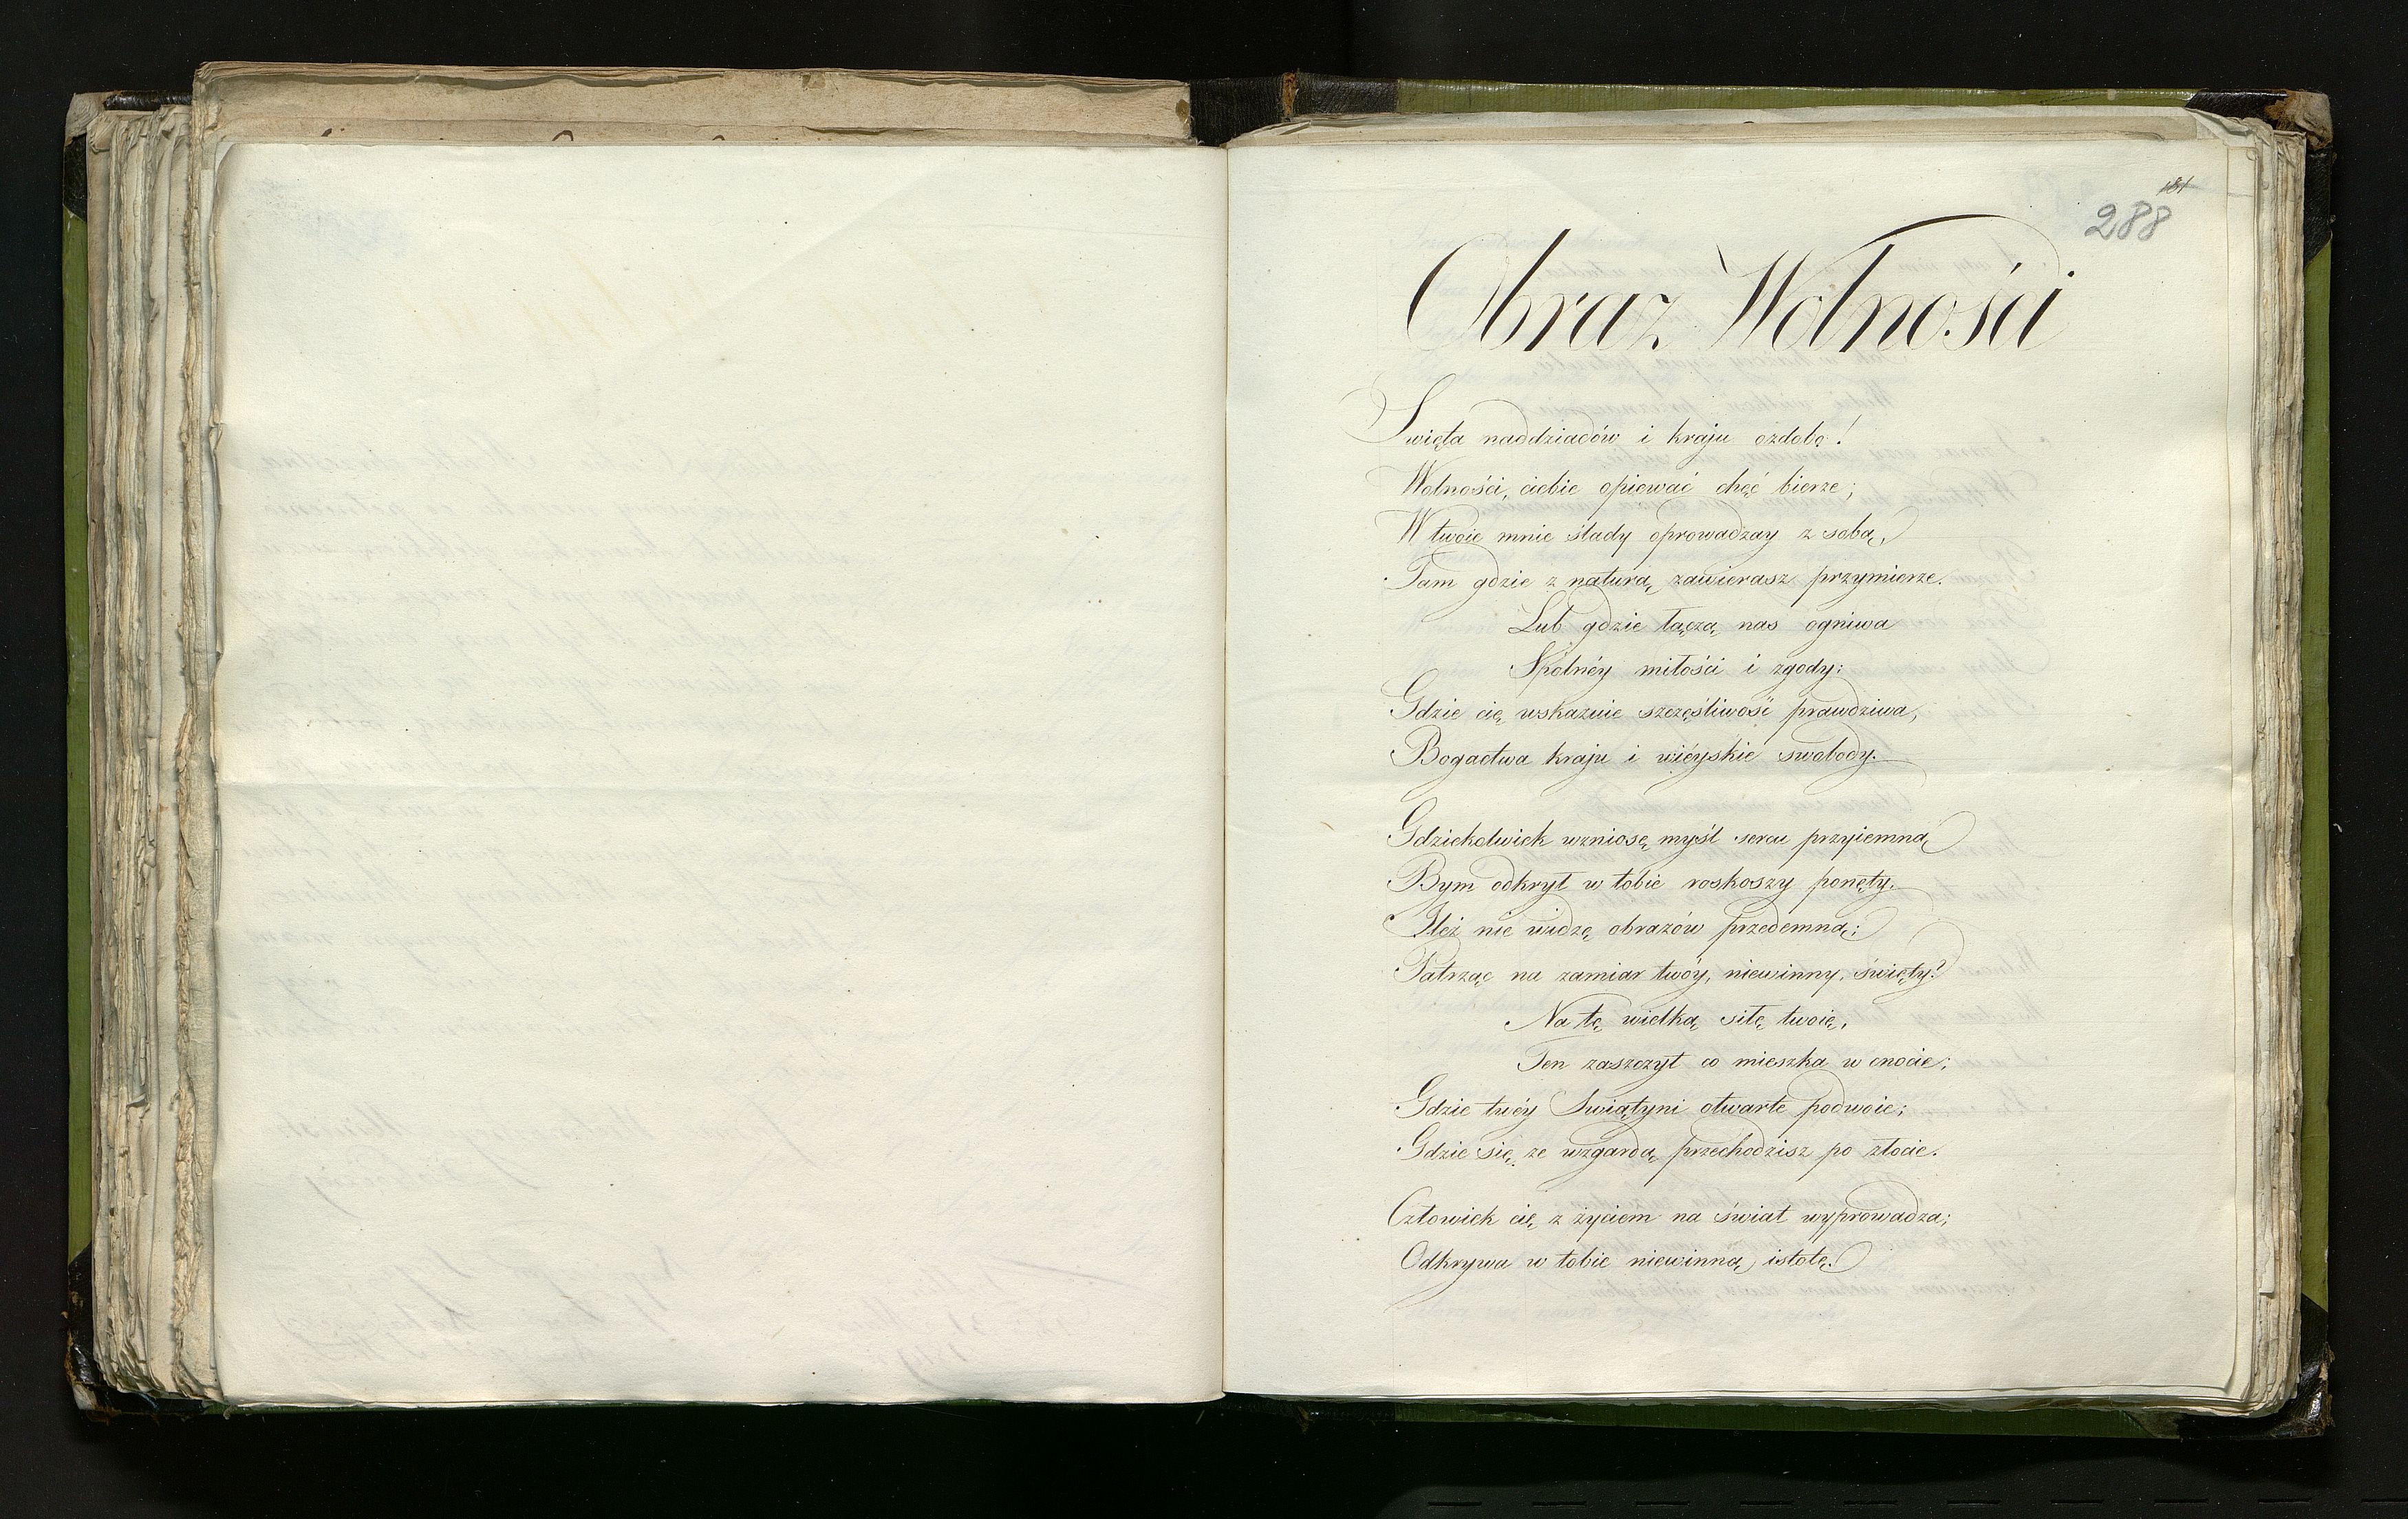 181
288
Obraz Wolności
Swięta naddziadów i kraju ozdobo!
Wolności, ciebie opiewać chęć bierze;
W twoie mnie ślady oprowadzay z sobą,
Tam gdzie z naturą zawierasz przymierze.
Lub gdzie łączą nas ogniwa
Spólnéy miłości i zgody:
Gdzie cię wskazuie szczęśliwość prawdziwa,
Bogactwa kraju i wiéyskie swobody.
Gdziekolwiek wzniosę myśl sercu przyiemną
Bym odkrył w tobie roskoszy ponęty.
Ileż nie widzę obrazów przedemną:
Patrząc na zamiar twóy, niewinny, święty?
Na tę wielką siłę twoię,
Ten zaszczyt co mieszka w cnocie;
Gdzie twéy Swiątyni otwarte podwoie;
Gdzie się ze wzgardą przechodzisz po złocie.
Człowiek cię z życiem na świat wyprowadza;
Odkrywa w tobie niewinną istotę.